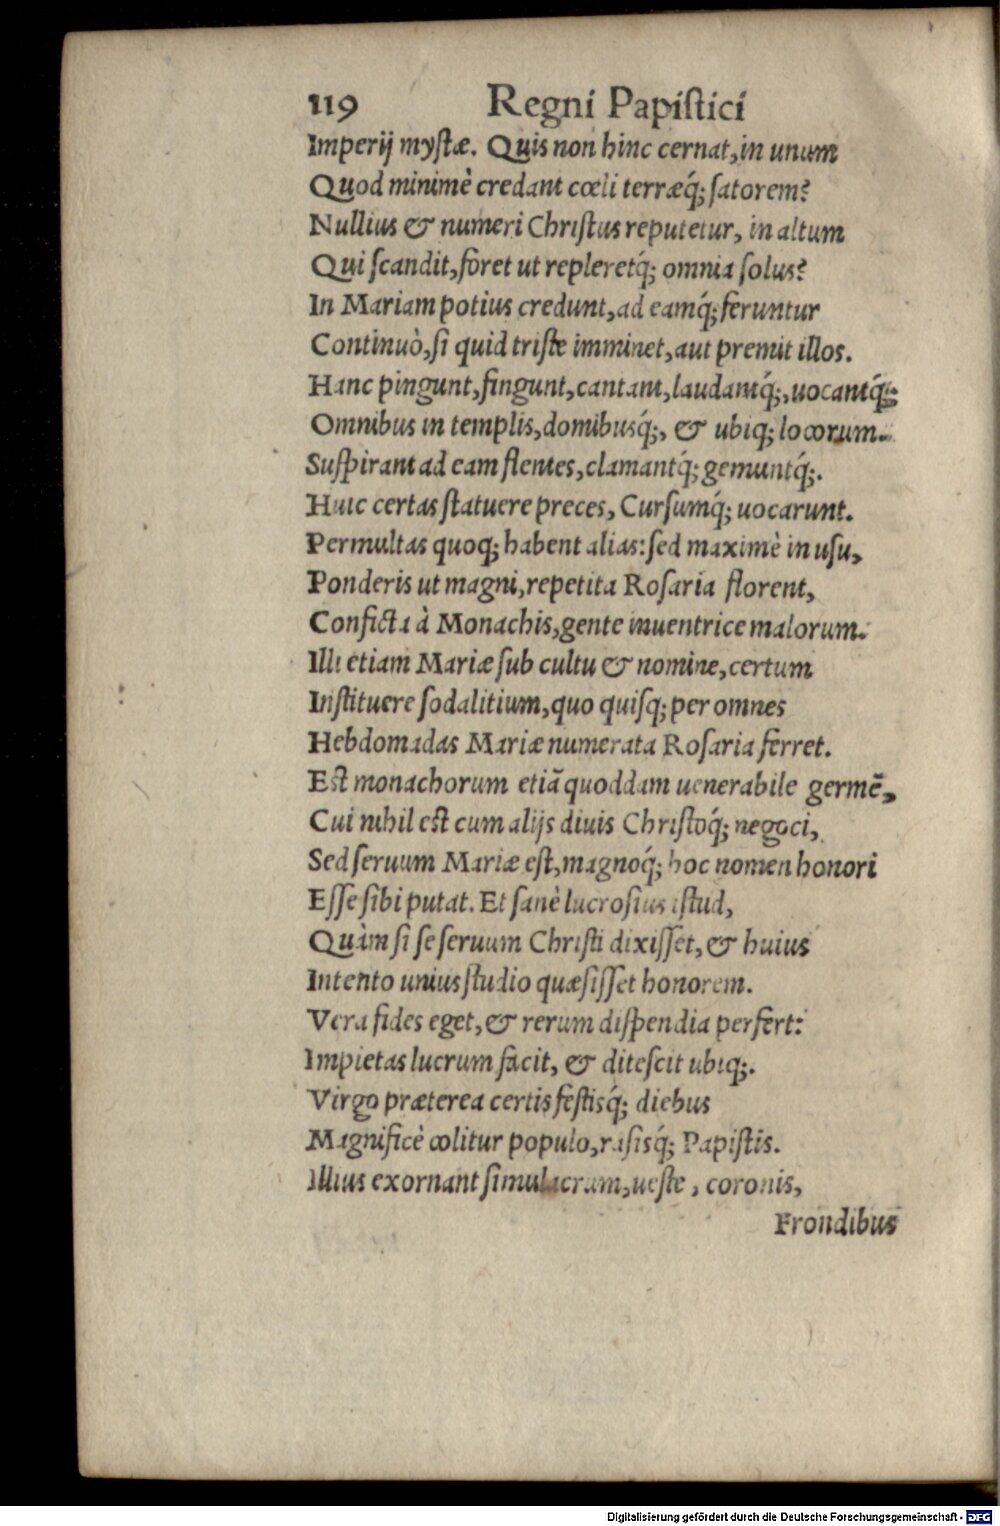 119 Regni Papistici
Imperij mystæ. Quis non hinc cernat, in unum
Quod minimè credant cœli terræq́; satorem?
Nullius & numeri Christus reputetur, in altum
Qui scandit, foret ut repleretq́; omnia solus?
In Mariam potius credunt, ad eamq́; feruntur
Continuò, si quid triste imminet, aut premit illos.
Hanc pingunt, fingunt, cantant, laudantq́;, uocantq́;
Omnibus in templis, domibusq́;, & ubiq; locorum.
Suspirant ad eam flentes, clamantq́; gemuntq́;.
Huic certas statuere preces, Cursumq́; uocarunt.
Permultas quoq; habent alias: sed maximè in usu,
Ponderis ut magni, repetita Rosaria florent,
Conficta à Monachis, gente inuentrice malorum.
Illi etiam Mariæ sub cultu & nomine, certum
Instituere sodalitium, quo quisq; per omnes
Hebdomadas Mariæ numerata Rosaria ferret.
Est monachorum etiã quoddam uenerabile germẽ,
Cui nihil est cum alijs diuis Christoq́; negoci,
Sed seruum Mariæ est, magnoq́; hoc nomen honori
Esse sibi putat. Et sanè lucrosius istud,
Quàm si se seruum Christi dixisset, & huius
Intento unius studio quæsisset honorem.
Vera fides eget, & rerum dispendia perfert:
Impietas lucrum facit, & ditescit ubiq;.
Virgo præterea certis festisq́; diebus
Magnificè colitur populo, rasisq́; Papistis.
Illius exornant simulacrum, ueste, coronis,
Frondibus
Digitalisierung gefördert durch die Deutsche Forschungsgemeinschaft - DFG